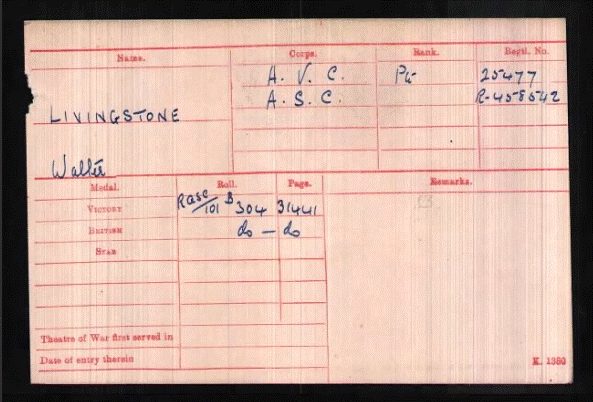 Name. Corps. Rank. Regtl. No.
A. V. C. Pte 25477
A. S. C. R-458542
LIVINGSTONE
Walter
Medal. Roll. Page. Remarks.
VICTORY RASC/101 B 304 31441
BRITISH do — do
STAR
Theatre of War first served in
Date of entry therein
K. 1380